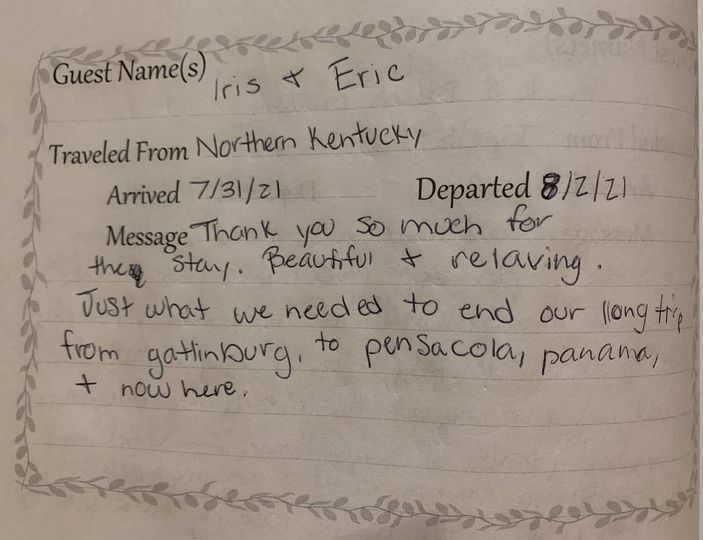 Guest Name(s) Iris + Eric
Traveled From Northern Kentucky
Arrived 7/31/21 Departed 8/2/21
Message Thank you so much for
the stay. Beautiful + relaving.
Just what we needed to end our llong trip
from gatlinburg, to pensacola, panama,
+ now here.